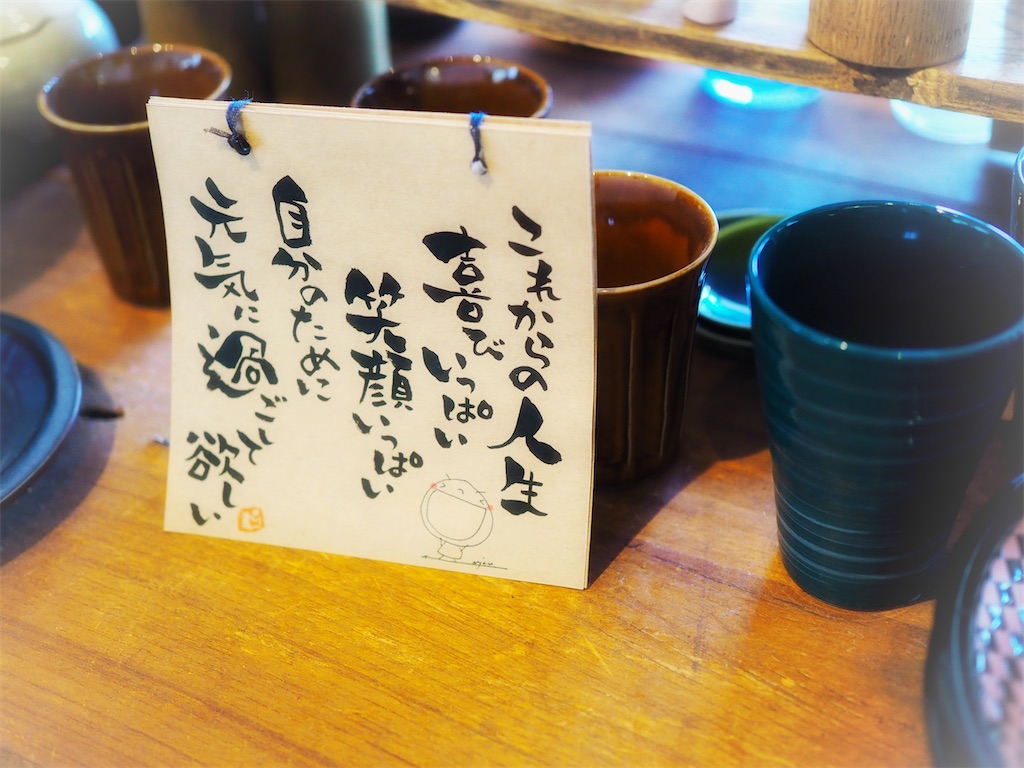 これからの人生
喜びいっぱい
笑顔いっぱい
自分のために
元気に過ごして欲しい